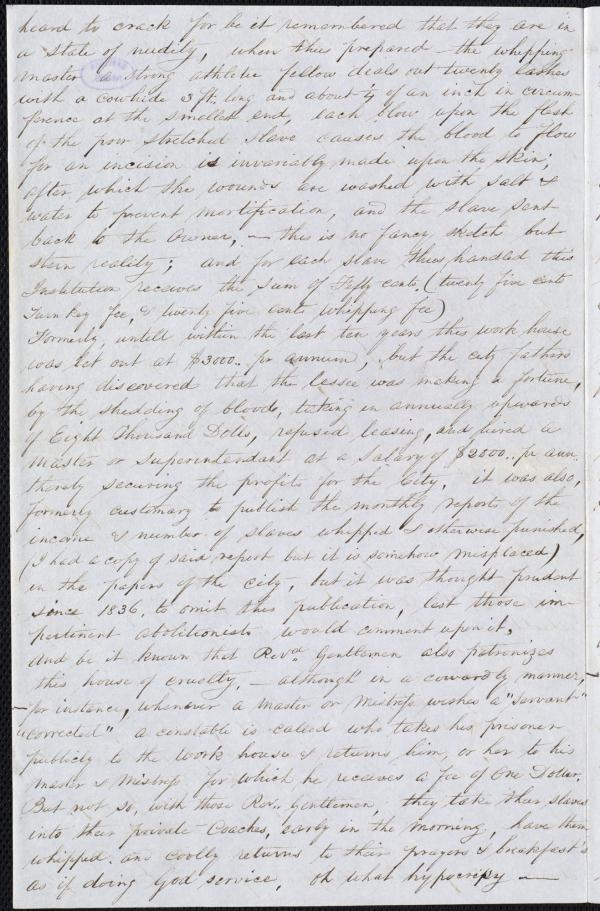 heard to crack for be it remembered that they are in
a state of nudity, when thus prepared — the whipping
master a strong athletic fellow deals out twenty lashes
with a cowhide 3 ft. long and about ¼ of an inch in circum-
ference at the smallest end, each blow upon the flesh
of the poor stretched slave causes the blood to flow
for an incision is invariably made upon the skin;
after which the wounds are washed with salt &
water to prevent mortification, and the slave sent
back to the owner, — this is no fancy sketch but
stern reality; and for each slave thus handled this
Institution receives the sum of Fifty cents, (twenty five cents
turn key fee, & twenty five cents whipping fee)
Formerly, untill within the last ten years this work house
was let out at $3000.. pr annum, but the city fathers
having discovered that the lessee was making a fortune,
by the shedding of blood, taking in annually upwards
of Eight Thousand Dolls, refused leasing, and hired a
master or superintendant at a salary of $2000.. pr ann.
thereby securing the profits for the City, it was also,
formerly customary to publish the monthly reports of the
income & number of slaves whipped & otherwise punished,
(I had a copy of said report but it is somehow misplaced)
in the papers of the city, but it was thought prudent
since 1836, to omit this publication, lest those im-
pertinent abolitionists would comment upon it,
And be it known that Revd. Gentlemen also patronizes
this house of cruelty, — although in a cowardly manner,
— for instance, whenever a master or Mistress wishes a "servant"
"corrected" a constable is called who takes his prisoner
publicly to the work house & returns him or her to his
master & Mistress for which he receives a fee of One Dollar.
But not so, with those Rev. Gentlemen, they take their slaves
into their private Coaches, early in the morning, have them
whipped and coolly returns to their prayers & breakfast's
as if doing God service, oh what hypocrisy —